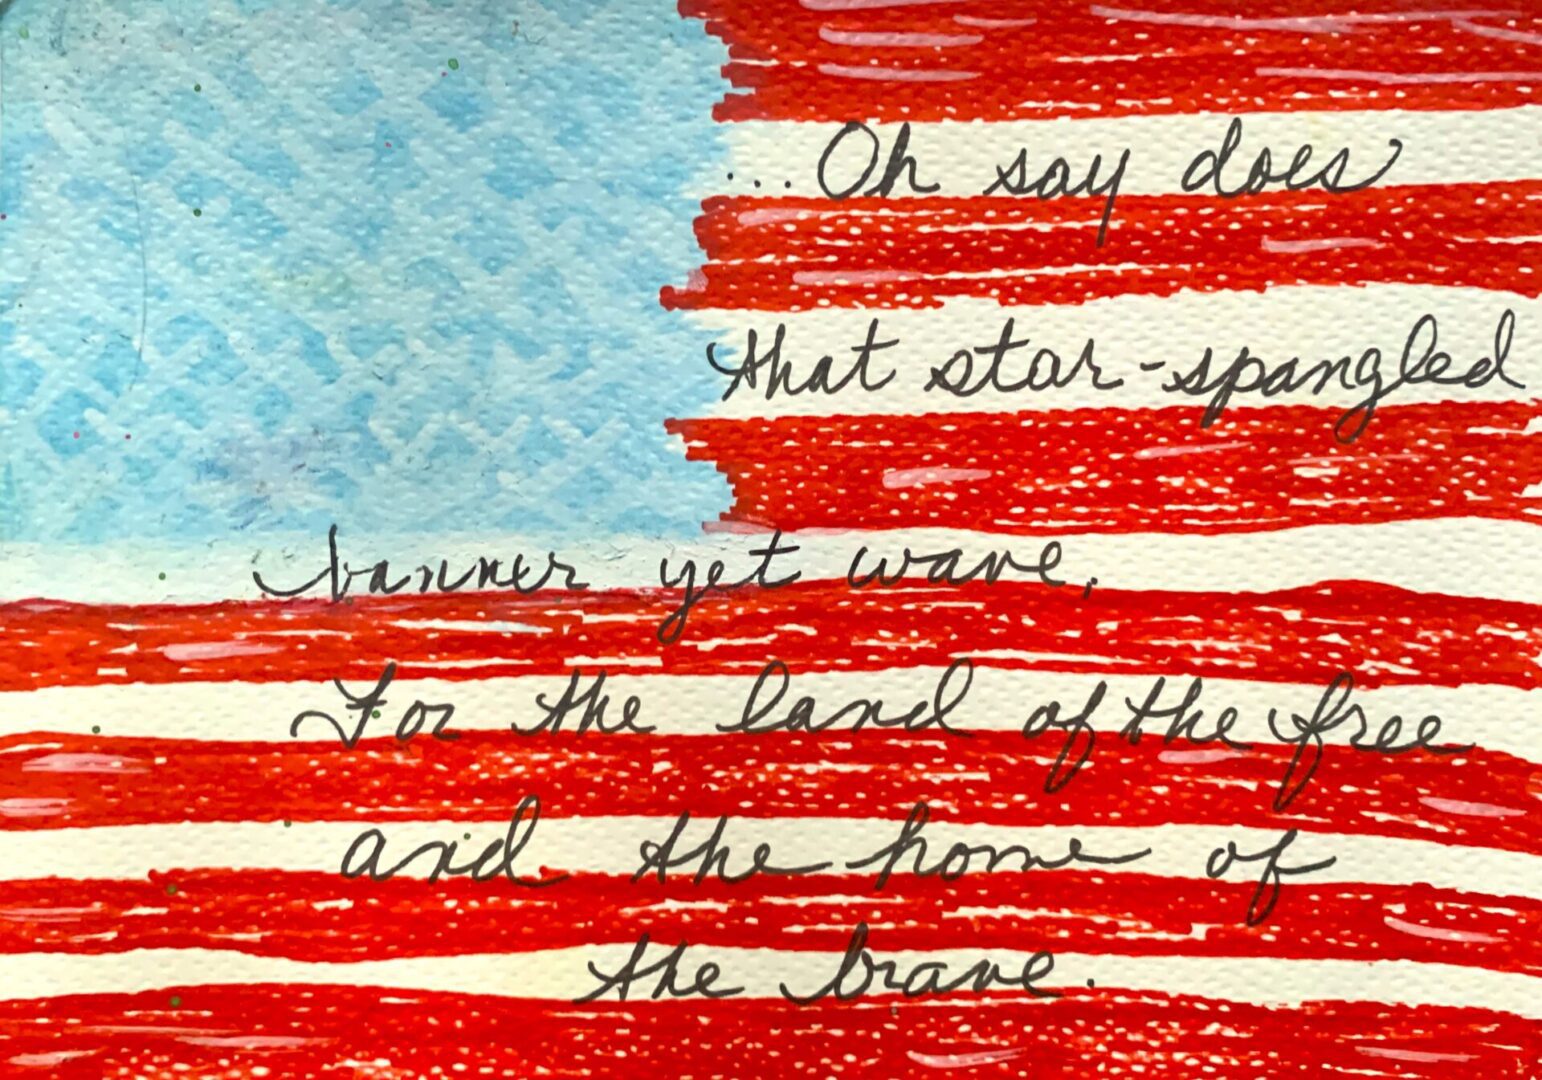 ...Oh say does
that star-spangled
banner yet wave,
For the land of the free
and the home of
the brave.